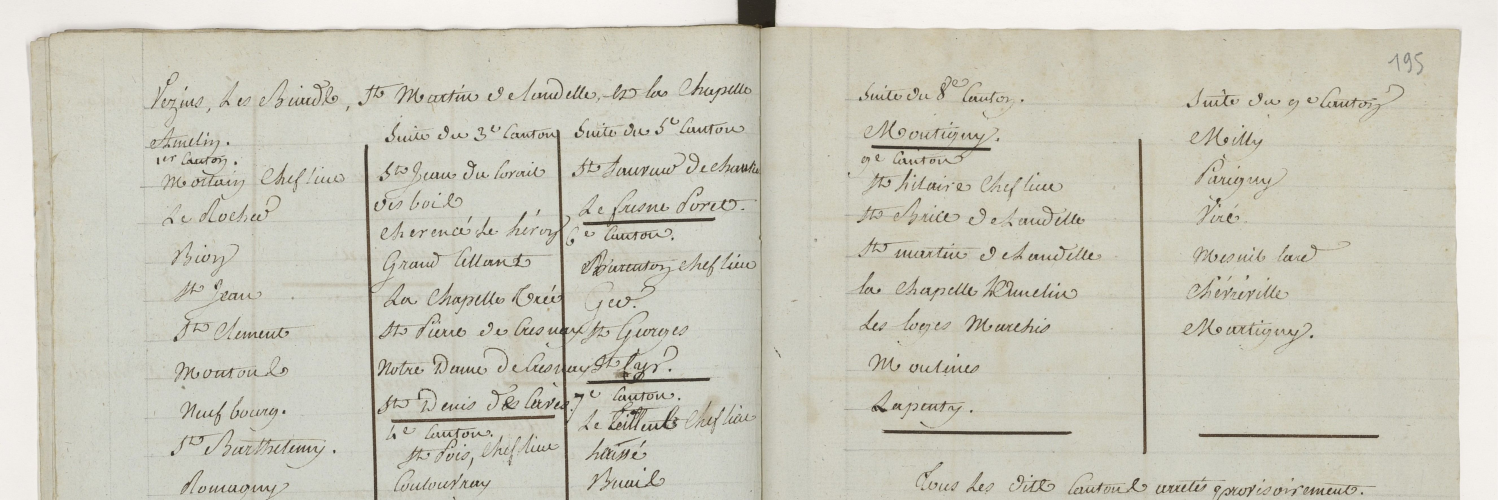 Vezins, Les Biards, St Martin de Landelle, et la Chapelle
Amelin.
1er Canton.
Mortain Chef lieu
Le Rocher
Bion
St Jean
St Clement
Moutons
Neufbourg.
St Barthelemy.
Romagny
Suite du 3e Canton
St Jean du Corail
Vis boil
Cherencé le héron
Grand Cellant
La Chapelle Urée
St Pierre de Cresnay
Notre Dame de Cresnay
St Denis des Cares
4e Canton.
St Pois, Chef lieu
Coulouvray
Suite du 5e Canton
St Sauveur de
Le fresne Poret.
6e Canton.
Barenton Chef lieu
Ger.
St Georges
St Cyr.
7e Canton.
Le Teilleul Chef lieu
haissé
Buail
195
Suite du 8e Canton.
Montigny.
9e Canton
St hilaire Chef lieu
St Brice de Landelle
St martin de Landelle
la Chapelle hamelin
Les loges Marchis
Moulines
Lapenty.
Suite du 9e Canton
Milly
Parigny
Viré
Mesnil lard
Chévréville
Martigny.
Tous les dits Cantons arretés provisoirement.